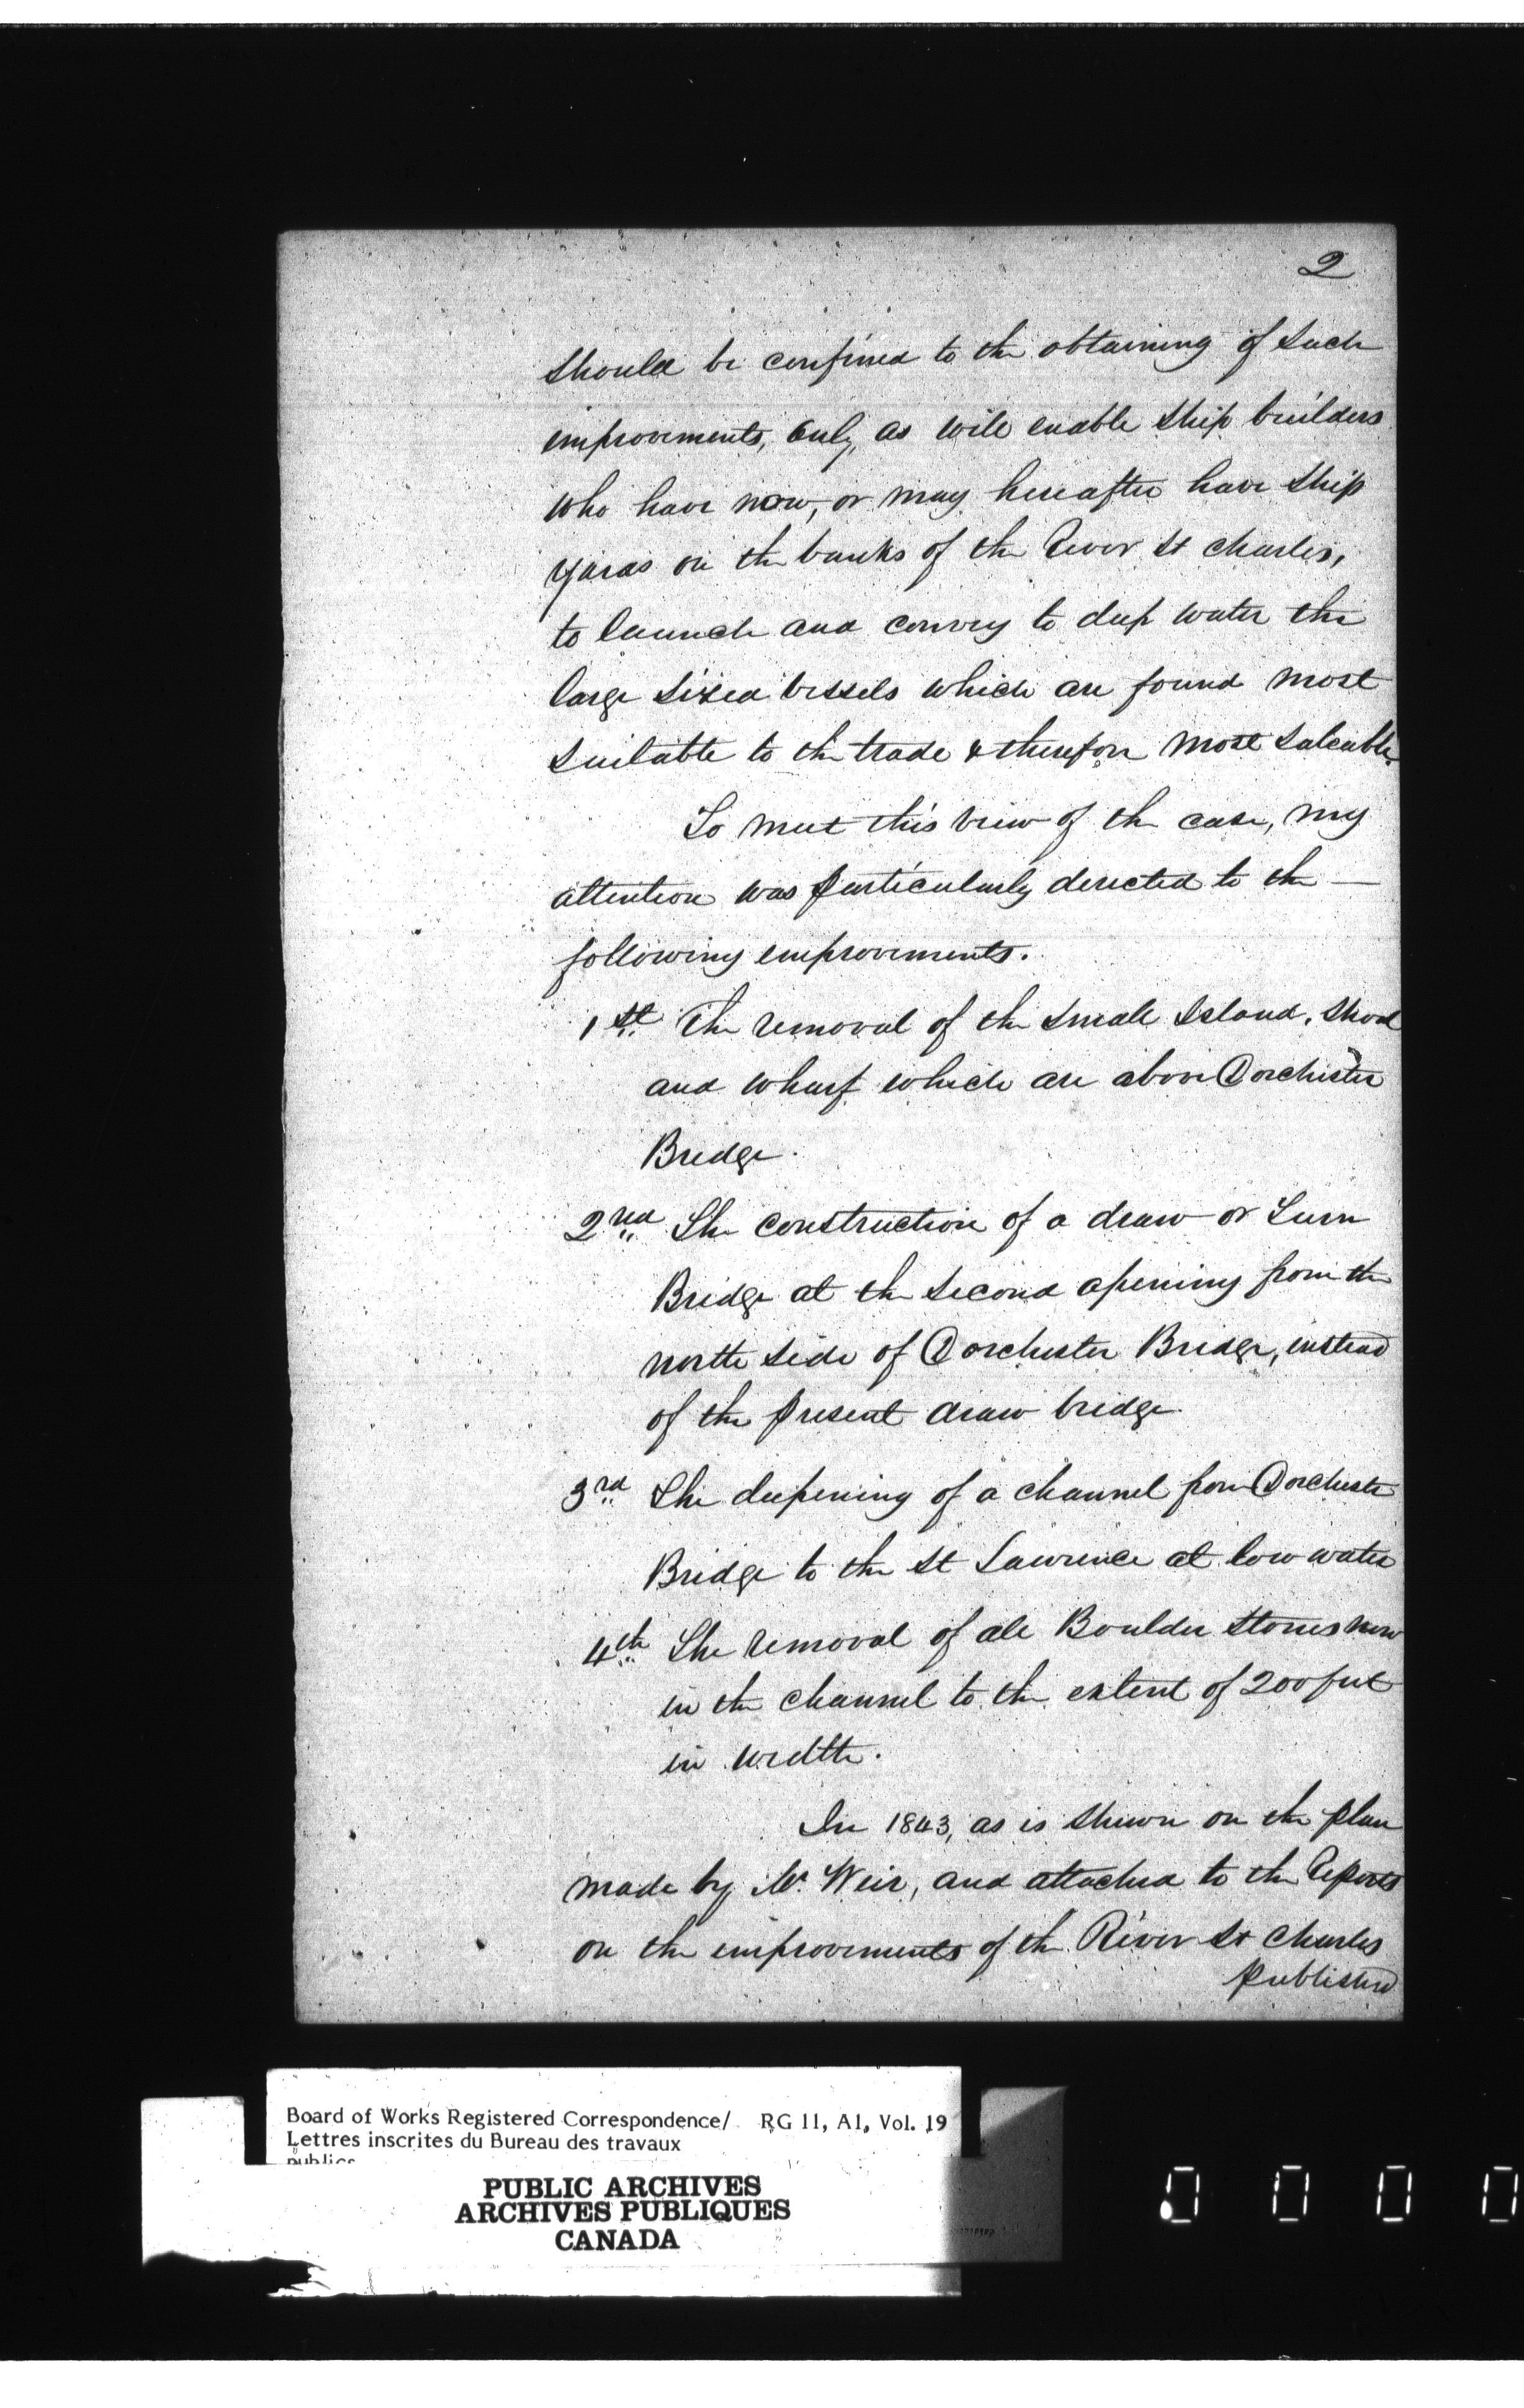 2
should be confined to the obtaining of such
improvements, only, as will enable ship builders
who have now, or may hereafter have ship
yards on the banks of the River St Charles,
to launch and convey to deep water the
large sized vessels which are found most
suitable to the trade & therefore most saleable.
To meet this view of the case, my
attention was particularly directed to the —
following improvements.
1st The removal of the small Island, Shoal
and wharf which are above Dorchester
Bridge.
2nd The construction of a draw or Turn
Bridge at the second opening from the
north side of Dorchester Bridge, instead
of the present draw bridge.
3rd The deepening of a channel from Dorchester
Bridge to the St Lawrence at low water
4th The removal of all Boulder stones now
in the channel to the extent of 200 feet
in width.
In 1843, as is shewn on the plan
made by Mr. Weir, and attached to the Reports
on the improvements of the River St Charles
published
Board of Works Registered Correspondence/ RG 11, A1, Vol. 19
Lettres inscrites du Bureau des travaux
publics
PUBLIC ARCHIVES
ARCHIVES PUBLIQUES
CANADA
0 0 0 0